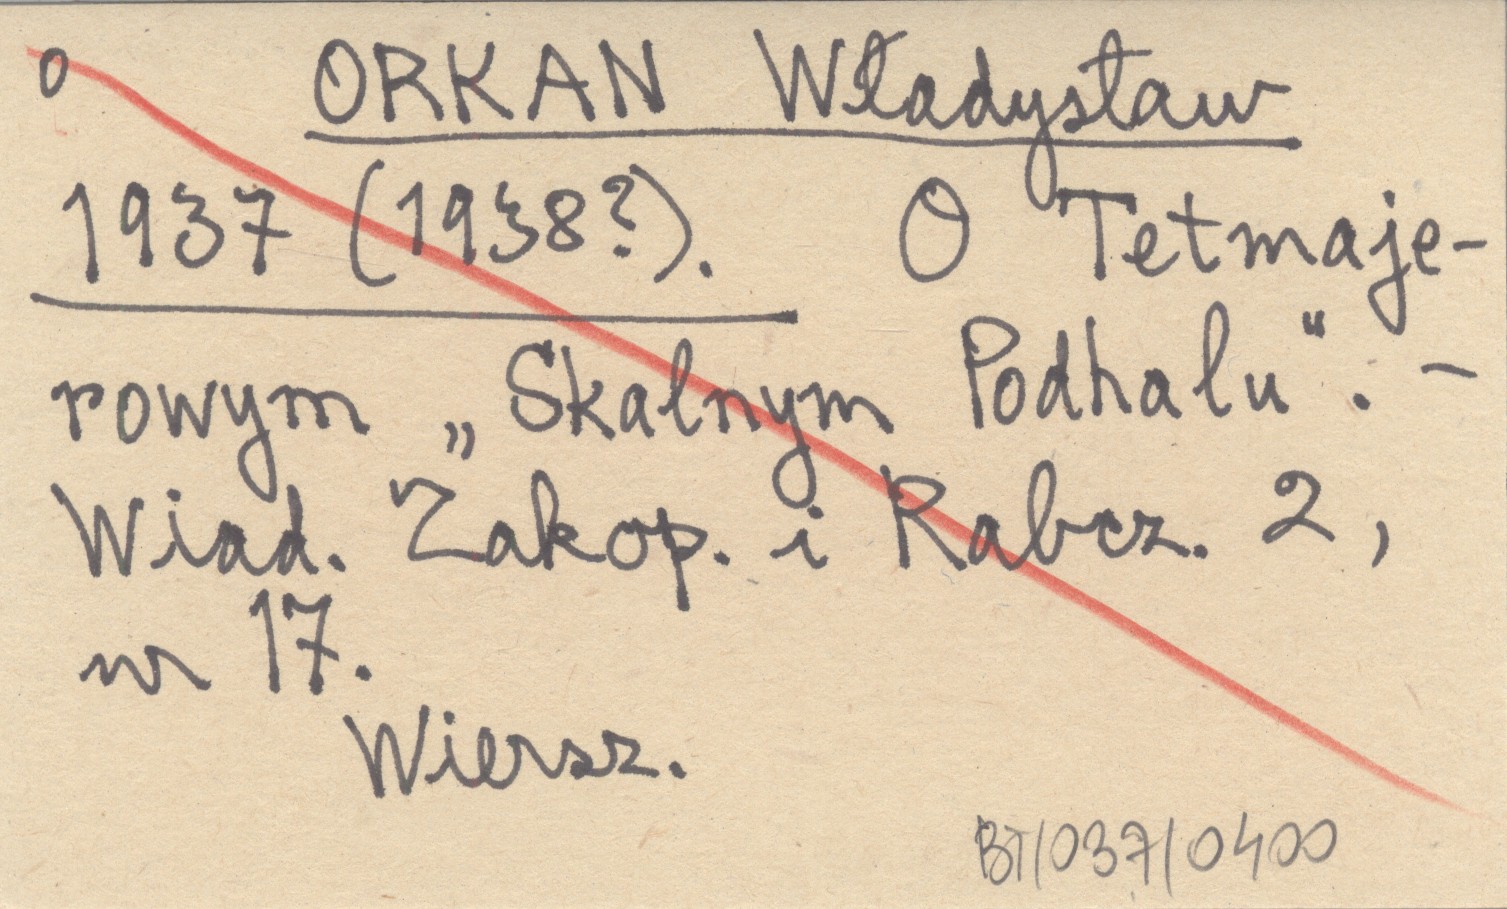 o ORKAN Władysław
1937 (1938?). O Tetmaje-
rowym „Skalnym Podhalu“. –
Wiad. Zakop. i Rabcz. 2,
nr 17.
Wiersz.
BT/037/0400